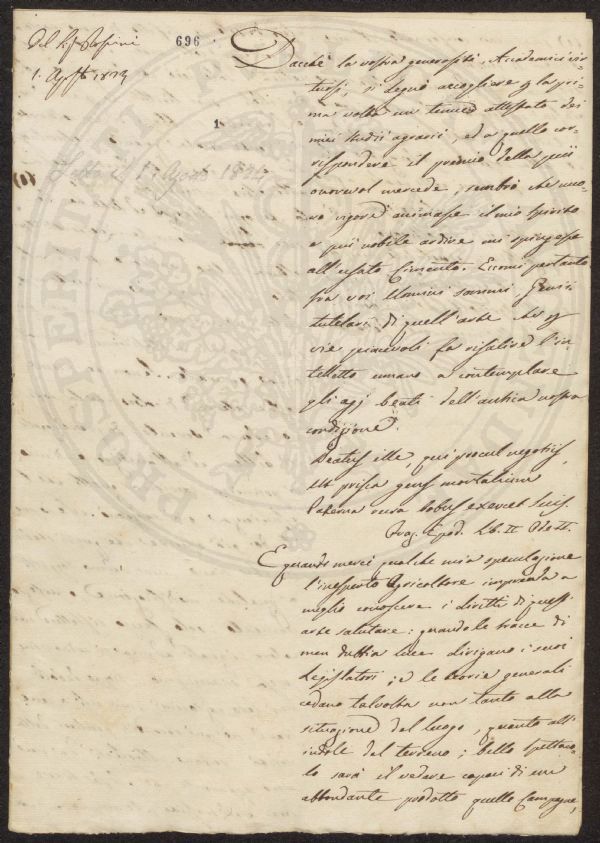 Del Sig.
1. Agosto 1824
696
1
Letta il 1. Agosto 1824
Dacché la vostra generosità, Accademici vir-
tuosi, si degnò accogliere p la pri-
ma volta un tenue attestato dei
miei studii agrarii, ed a quello cor-
rispondere il premio della più
onorevol mercede, sembrò che nuo-
vo vigore animasse il mio spirito
e più nobile ardire mi spingesse
all'usato Cimento. Eccomi pertanto
fra voi Uomini sommi, Genii
tutelari di quell'arte che p
vie piacevoli fa risalire l'in-
telletto umano a contemplare
gli agj beati dell'antica nostra
condizione.
Beatus ille, qui procul negotiis,
Ut prisca gens mortalium
Paterna rura bobus exercet suis.
Oraz. Epod. Lib. Ode II.
E quando mercé qualche mia speculazione
l'inesperto Agricoltore imprenda a
meglio conoscere i diritti di quest'
arte salutare: quando le tracce di
men dubbia luce dirigano i suoi
Legislatori; e le teorie generali
cedano talvolta non tanto alla
situazione del luogo, quanto all'
indole del terreno; bello spettaco-
lo sarà il vedere capaci di un
abbondante prodotto quelle Campagne,
PROSPERITÀ